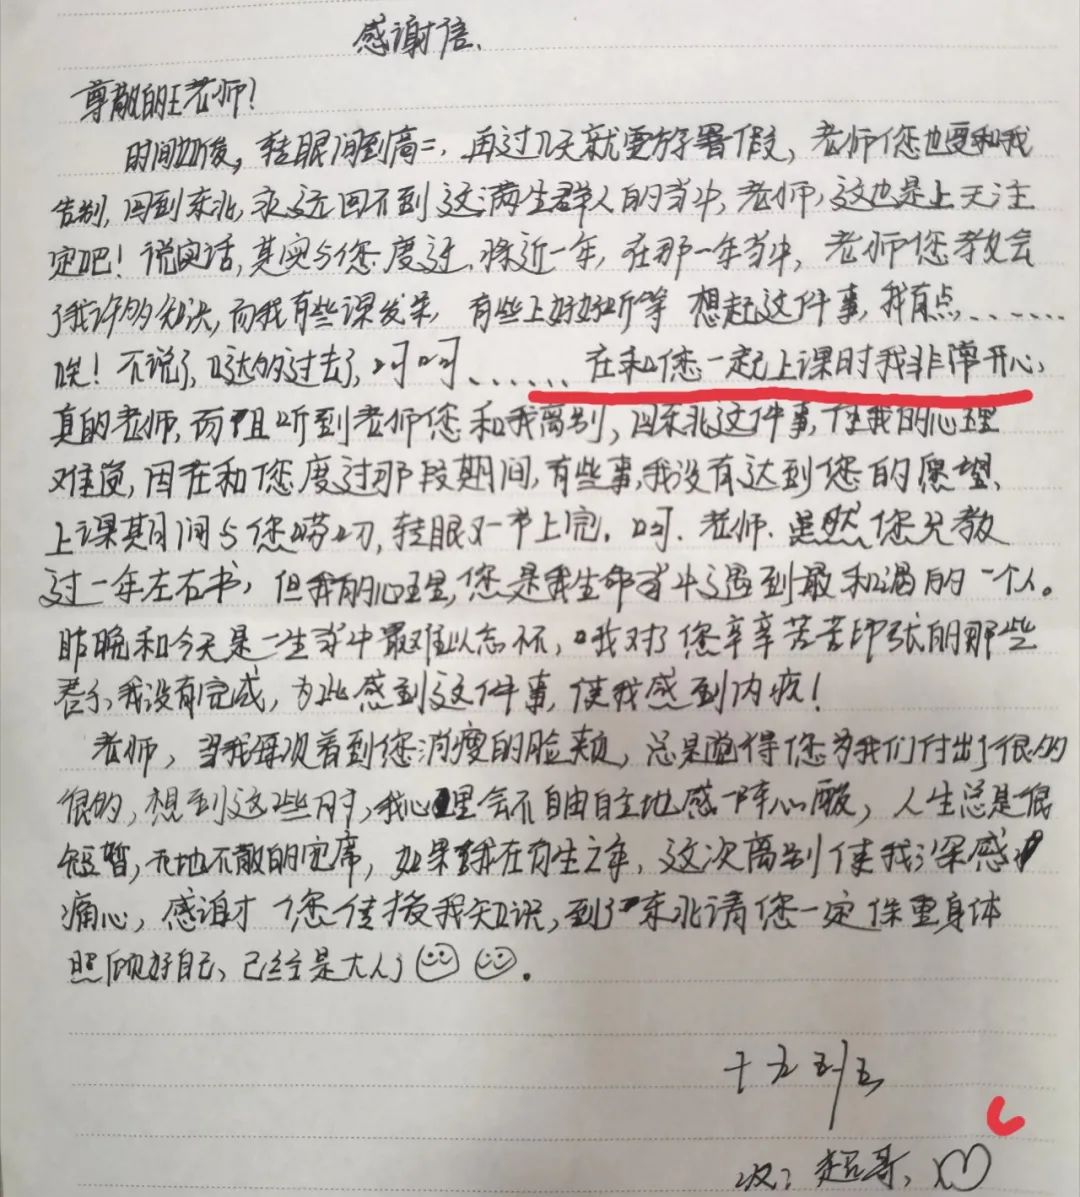 感谢信、
尊敬的王老师！
时间如梭，转眼间到高二，再过几天就要放暑假，老师您也要和我
告别，回到东北，永远回不到这满生群人的当中，老师，这也是上天注
定吧！说实话，其实与您度过，将近一年，在那一年当中，老师您教会
了我许多知识，而我有些课发呆，有些上好好听等 想起这件事，我有点、、、、、、
唉！不说了，都过去了，呵呵、、、、、、在和您一起上课时我非常开心，
真的老师，而且听到老师您和我离别，回东北这件事，使我的心里
难受，因在和您度过那段期间，有些事，我没有达到您的愿望、
上课期间与您唠叨，转眼又一节上完。呵、老师、虽然您只教
过一年左右书，但我的心里，您是我生命当中遇到最和谒的一个人。
昨晚和今天是一生当中最难以忘怀，我对了您辛辛苦苦印张的那些
卷子、我没有完成，为此感到这件事，使我感到内疚！
老师，当我每次看到您消瘦的脸颊，总是觉得您为我们付出了很多
很多，想到这些时，我心里会不自由自主地感一阵心酸，人生总是很
短暂，无地不散的宴席，如果我在有生之年，这次离别使我深感
痛心，感谢您传授我知识，到了东北请您一定保重身体
照顾好自己、已经是大人了。
十五班
超哥、